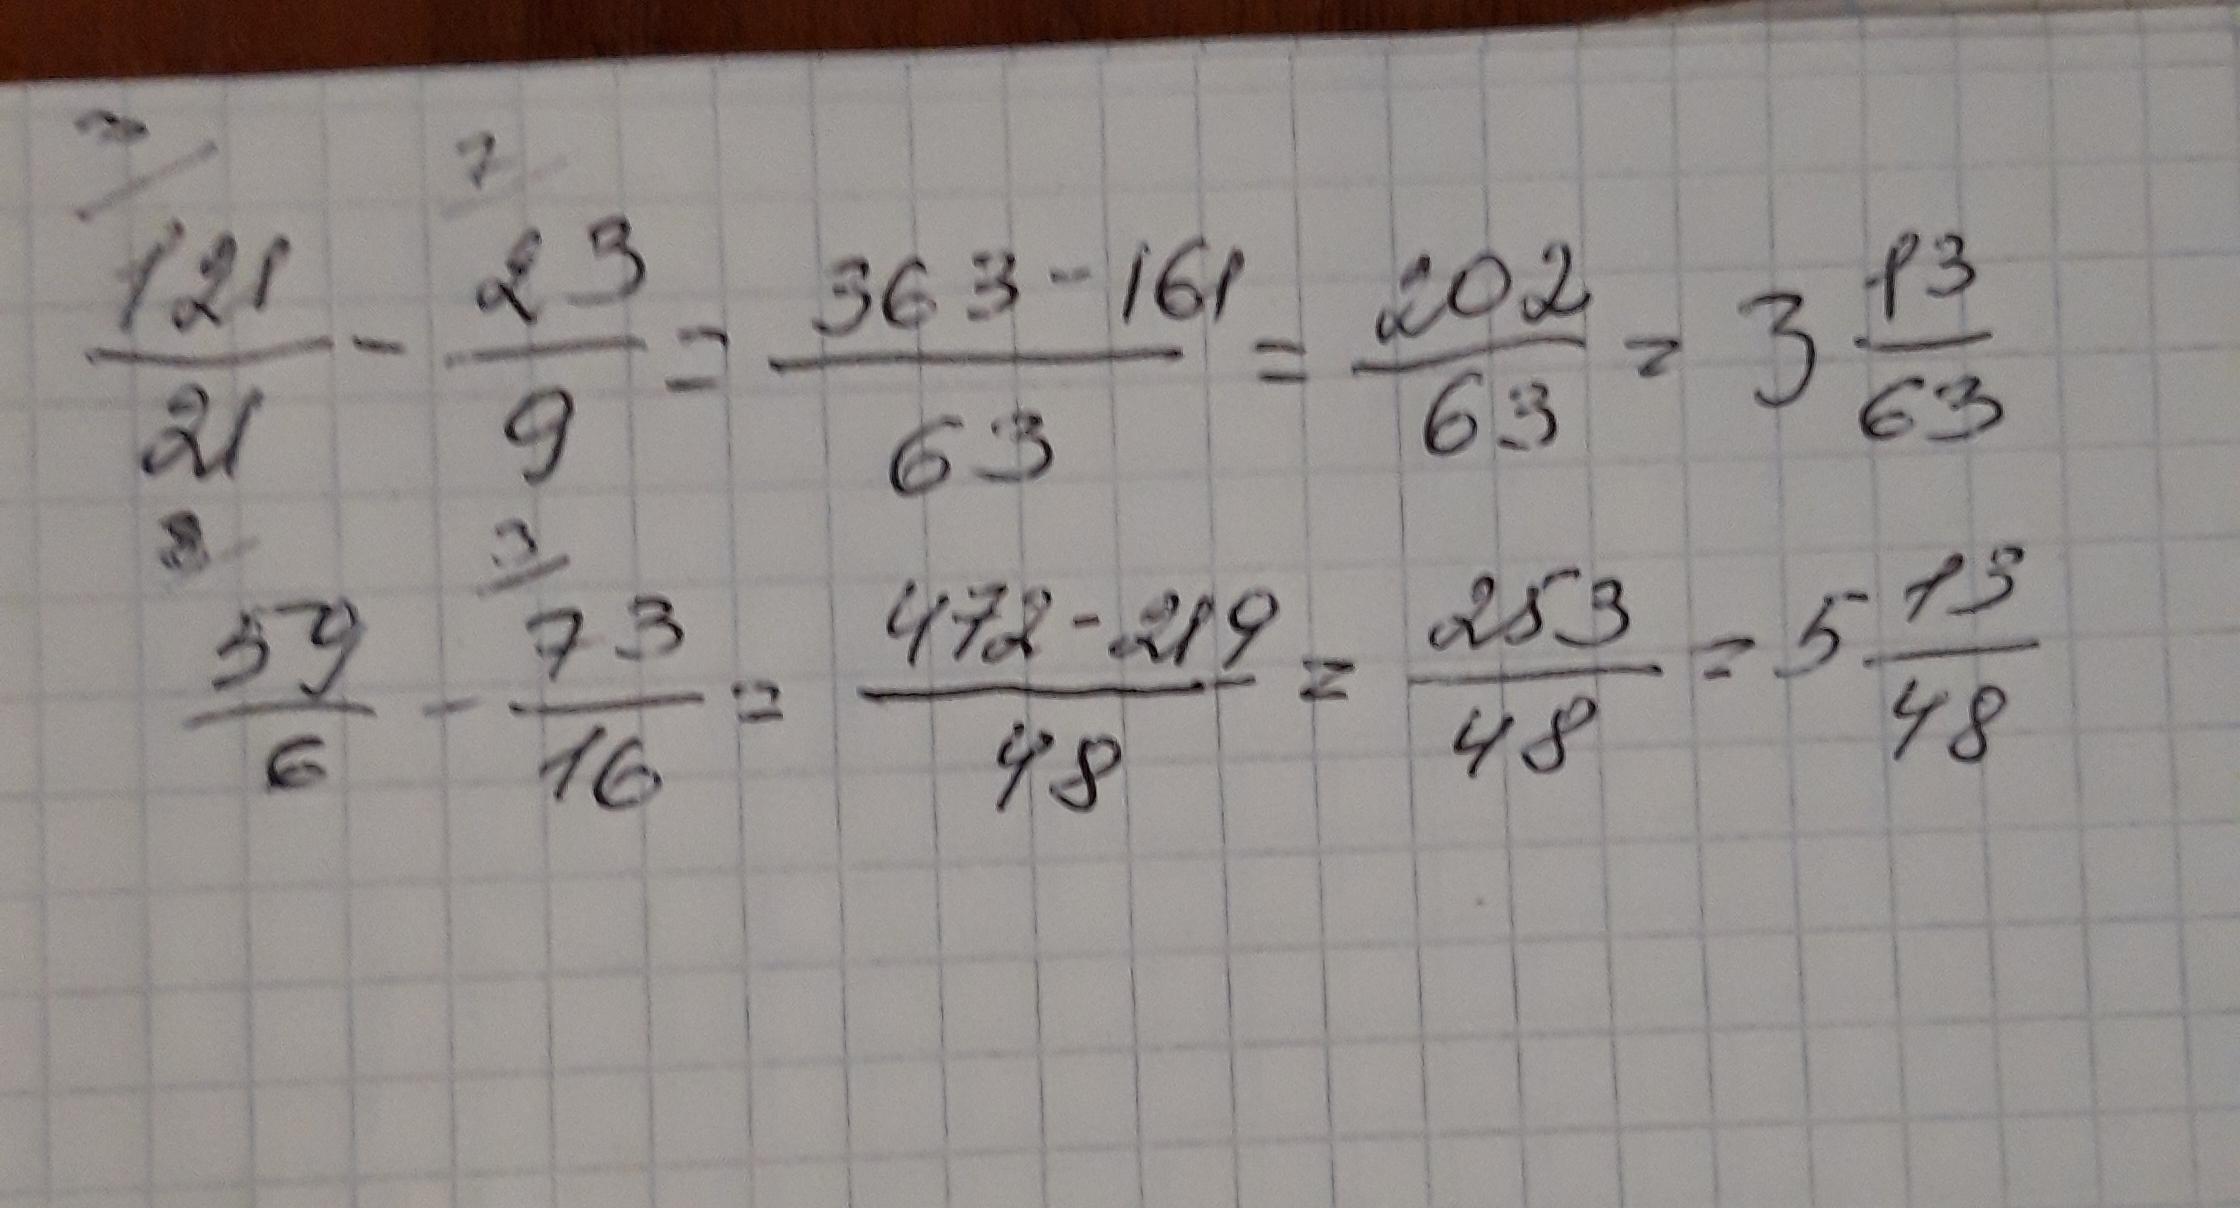 3/ 7/
121/21 - 23/9 = 363-161/63 = 202/63 = 3 13/63
8/ 3/
59/6 - 73/16 = 472-219/48 = 253/48 = 5 13/48